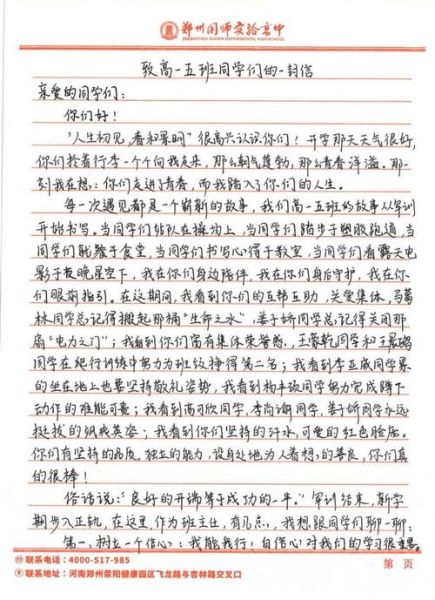 郑州国师实验高中
致高一五班同学们的一封信
亲爱的同学们：
你们好！
“人生初见，春和景明”很高兴认识你们！开学那天天气很好，
你们拎着行李一个个向我走来，那么朝气蓬勃，那么青春洋溢。那一
刻我在想：你们走进了青春，而我踏入了你们的人生。
每一次遇见都是一个崭新的故事，我们高一五班的故事从军训
开始书写。当同学们站队在操场上，当同学们踏步于塑胶跑道，当
同学们就餐于食堂，当同学们书写心得于教室，当同学们看露天电
影于夜晚星空下，我在你们身边陪伴，我在你们身后守护，我在你
们眼前指引。在这期间，我看到你们的互帮互助，关爱集体，马
林同学总记得搬起那桶“生命之水”，姜子娇同学总记得关闭那
扇“电力之门”；我看到你们富有集体荣誉感，王同学和王
同学在爬行训练中努力为班级挣得第二名；我看到李亚威同学累
的坐在地上也要坚持敬礼姿势，我看到杨丰硕同学努力完成蹲下
动作的难能可贵；我看到高可欣同学，李尚谕同学，姜子娇同学永远
挺拔的飒爽英姿；我看到你们坚持的汗水，可爱的红色脸庞。
你们有坚持的品质，独立的能力，设身处地为人着想的善良，你们真
的很棒！
俗话说：“良好的开端等于成功的一半。”军训结束，新学
期步入正轨，在这里，作为班主任，有几点，我想跟同学们聊一聊：
第一，树立一个信心：我能我行！自信心对我们的学习很重要。
联系电话：4000-517-985
联系地址：河南郑州荥阳健康园区飞龙路与杏林路交叉口
第 页